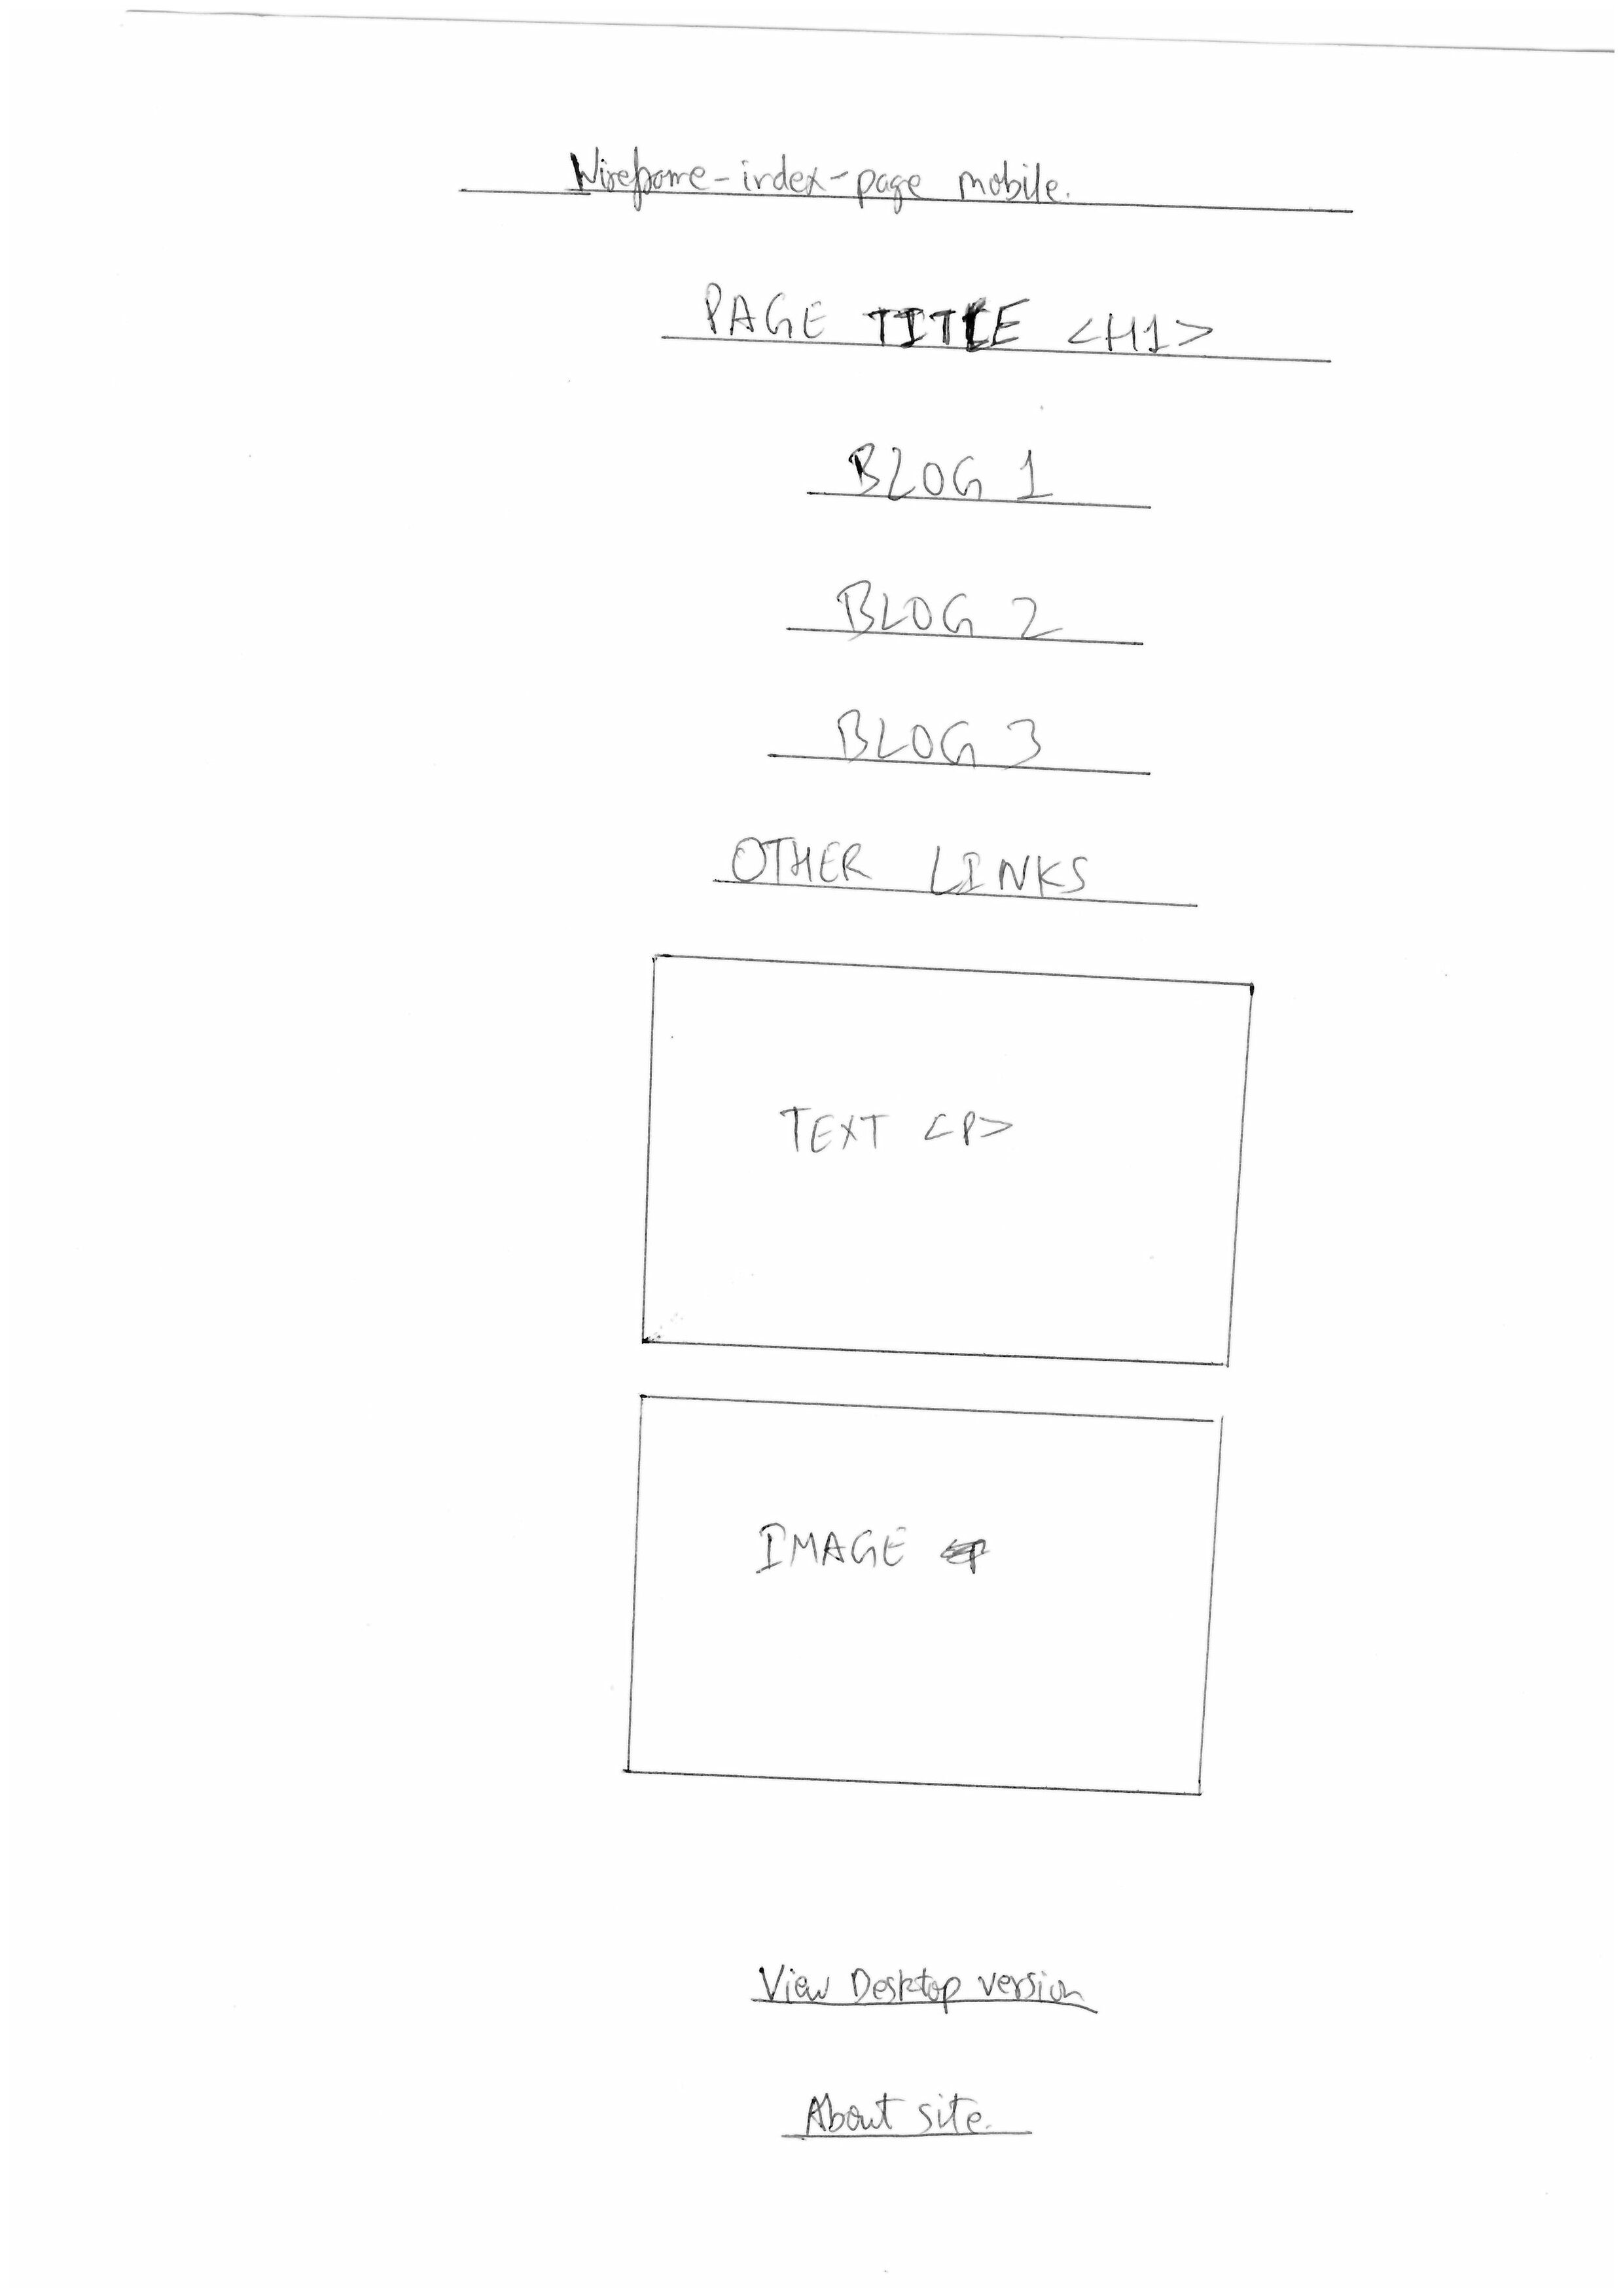 Wireframe-index-page mobile.
PAGE TITLE <H1>
BLOG 1
BLOG 2
BLOG 3
OTHER LINKS
TEXT <P>
IMAGE
View Desktop version
About site.